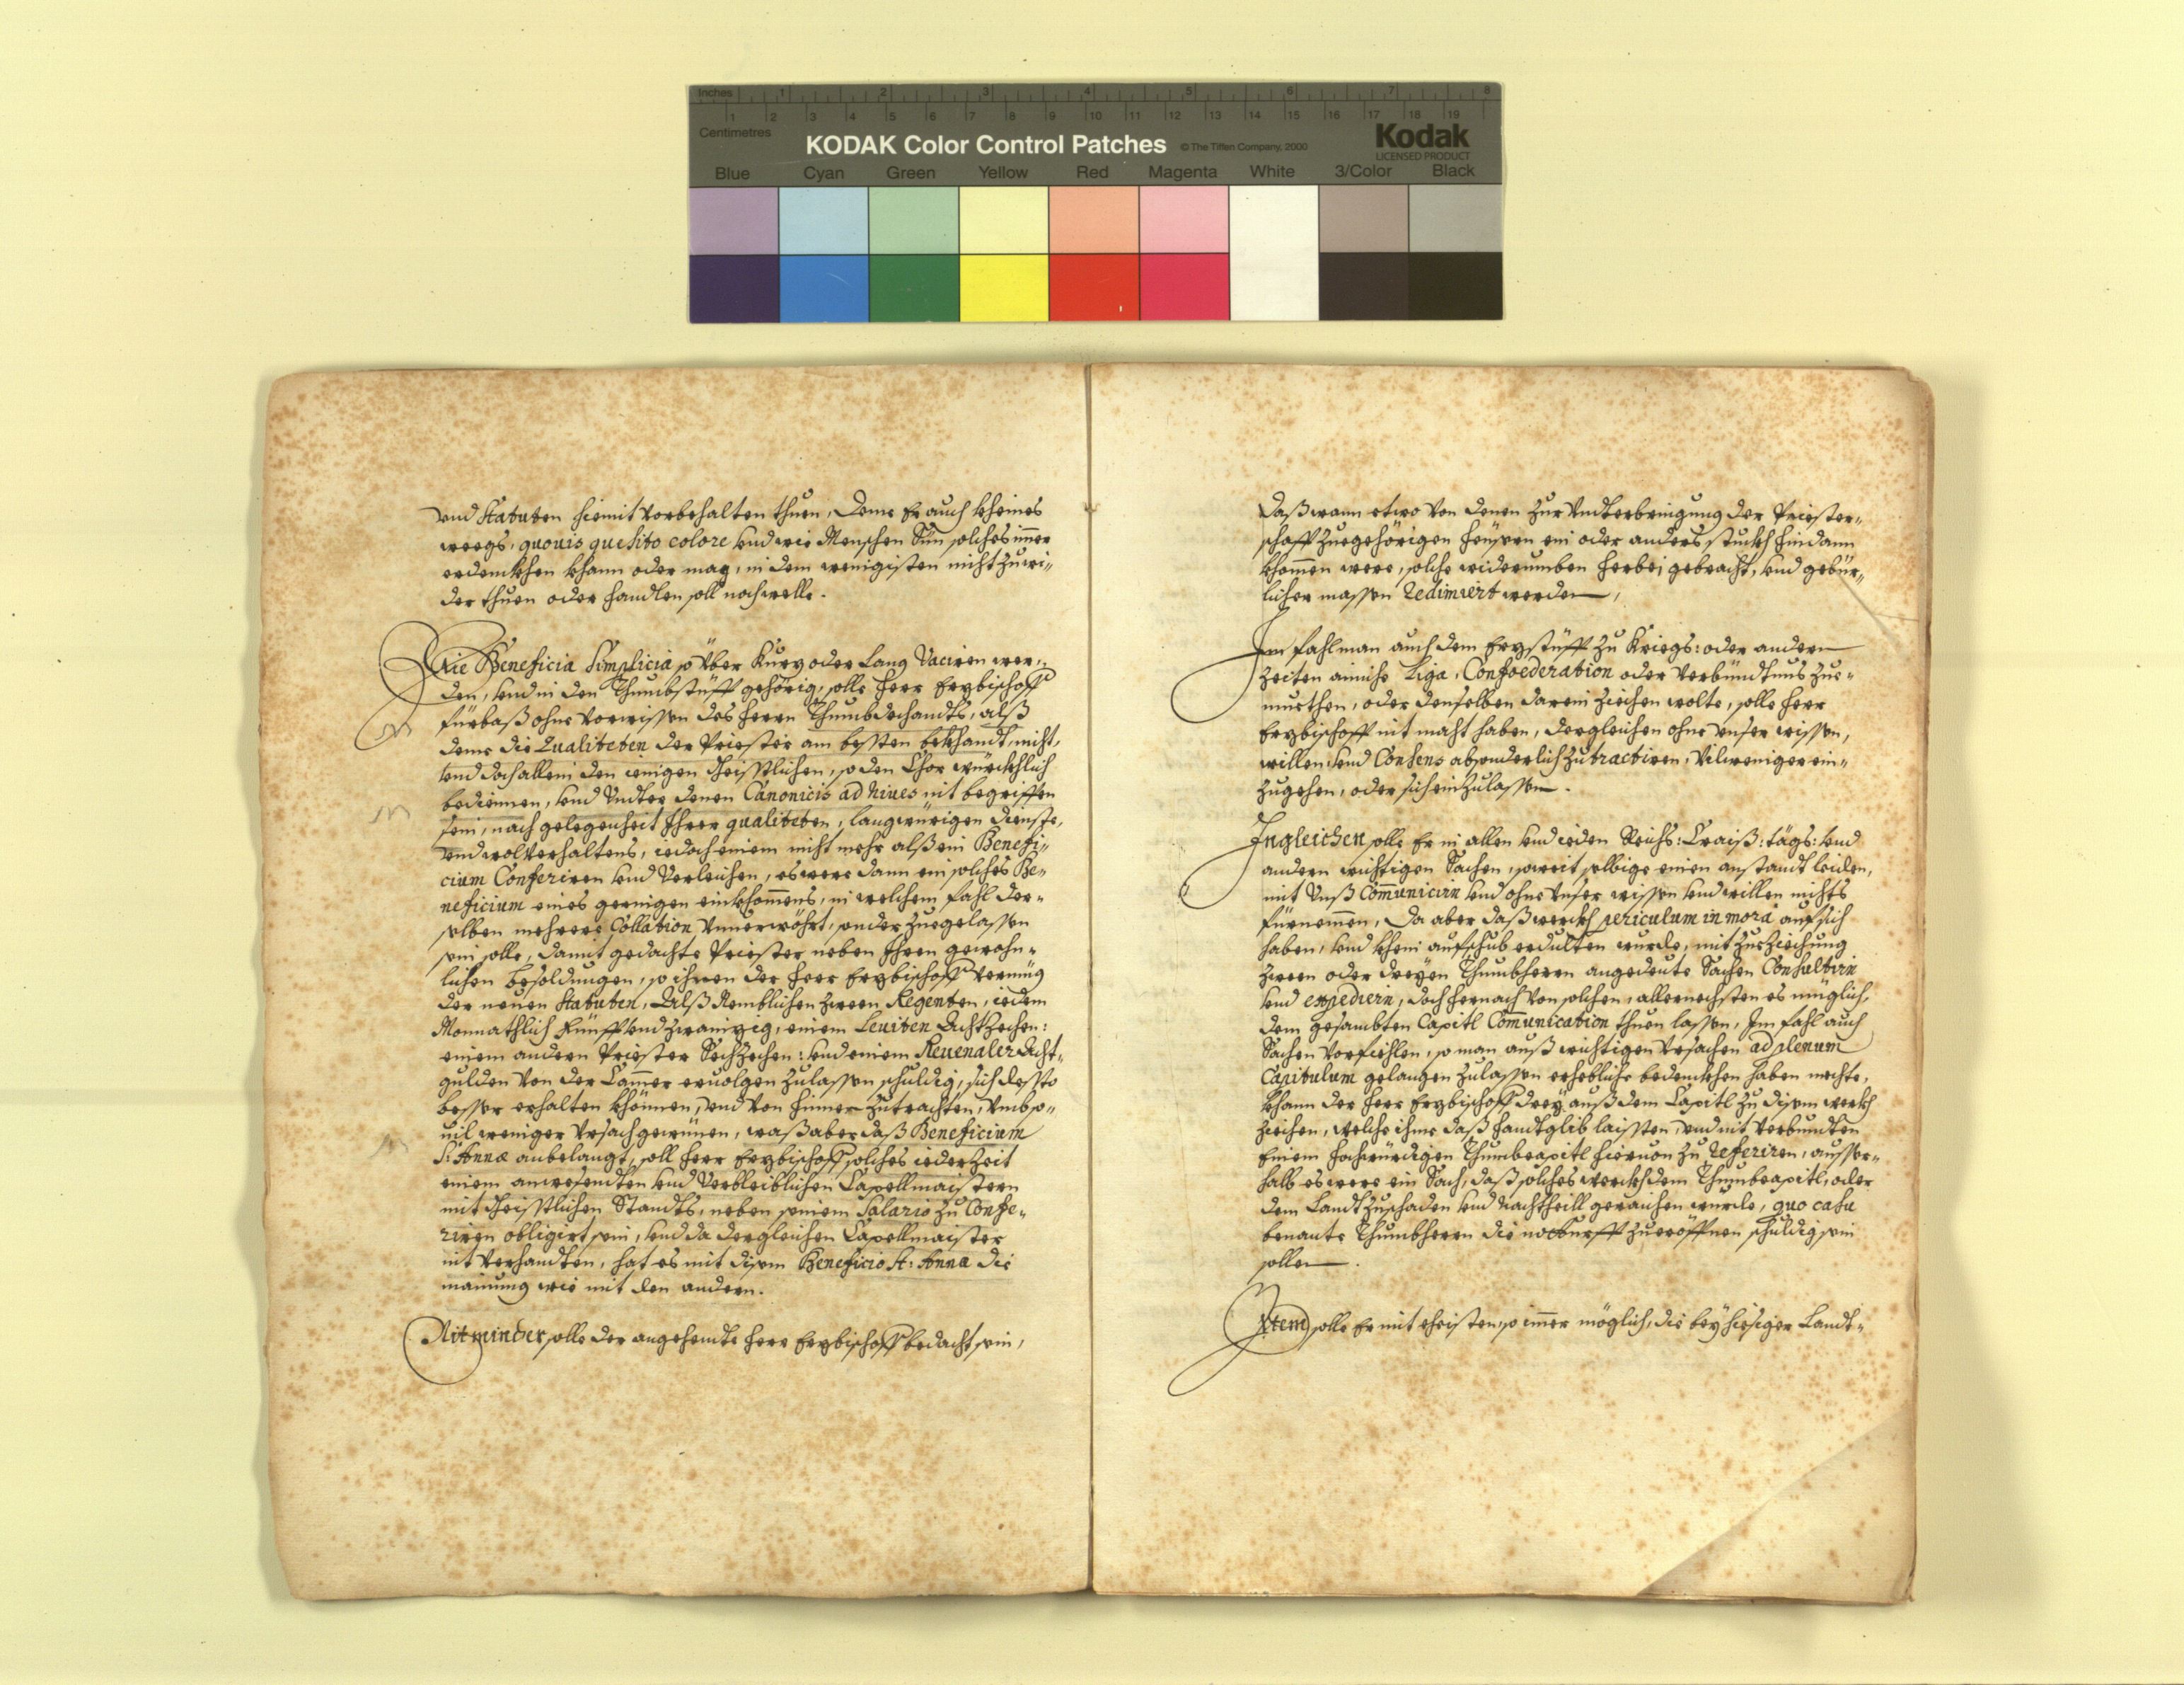 Inches 1 2 3 4 5 6 7 8
Centimetres 1 2 3 4 5 6 7 8 9 10 11 12 13 14 15 16 17 18 19
KODAK Color Control Patches © The Tiffen Company, 2000 Kodak
LICENSED PRODUCT
Blue Cyan Green Yellow Red Magenta White 3/Color Black
vnd Statuten hiemit vorbehalten thuen, deme Er auch kheines
weegs, quouis quesito colore vnd wie Menschen Sün solches imer
erdenckhen khann oder mag, in dem wenigisten nicht zuwi„
der thuen oder handlen soll noch welle.
Die Beneficia Simplicia so über Kurz oder Lang Vaciren wer„
den, vnd in den Thumbstüfft gehörig, solle herr Erzbischoff
fürbaß ohne vorwissen des herrn Thumbdechandts, alß
deme die Qualiteten der Priester am besten bekhandt, nicht,
vnd doch allein den ienigen Geistlichen, so den Chor würckhlich
bediennen, vnd Vndter denen Canonicis ad Niues nit begriffen
sein, nach gelegenheit Ihrer qualiteten, langwürigen dienste,
vnd wolverhaltens, iedoch einem nicht mehr alß ein Benefi„
cium Conferiren vnd Verleichen, es were dann ein solches Be„
neficium eines geringen einkhomens, in welchem fahl der„
selben mehrere Collation Vnuerwöhrt, sonder zuegelassen
sein solle, damit gedachte Priester neben Ihren gewohn„
lichen besoldungen, so ihnen der herr Erzbischoff vermüg
der neuen Statuten, Alß Nemblichen zween Regenten, iedem
Monnathlich Fünff vnd zwainzig, einem Leuiten Achtzechen:
einem andern Priester Sechzechen: vnd einem Reuenaler Acht„
gulden von der Camer eruolgen zulassen schuldig, sich desto
besser erhalten khönnen, vnd von hinnen zutrachten, vmb so„
uil weniger vrsach gewinen, waß aber daß Beneficium
S: Annæ anbelangt, soll herr Erzbischoff solches iederzeit
einem anwesendten vnd Verbleiblichen Capellmaistern
mit Geistlichen Standts, neben seinem Salario zu Confe„
riren obligirt sein, vnd da dergleichen Capellmaister
nit Verhandten, hat es mit disem Beneficio St: Anna die
mainung wie mit den andern.
Nit minder, solle der angehendte herr Erzbischoff bedacht sein,
daß wann etwo von denen zur Vndterbringung der Priester„
schafft zuegehörigen heüsern ein oder anders stuckh hindann
khomen were, solche widerumben herbei gebracht, vnd gebür„
licher massen redimiert werden,
Im fahl man auch dem Erzstüfft zu Kriegs: oder andern
Zeiten ainiche Liga, Confoederation oder Verbündtnus zue„
muethen, oder denselben darein ziechen wolte, solle herr
Erzbischoff nit macht haben, dergleichen ohne vnser wissen,
willen vnd Consens absonderlich zu tractiren, vilweniger ein„
zugehen, oder sich einzulassen.
Ingleichen solle Er in allen vnd ieden Reichs: Craiß: tägs: vnd
andern wichtigen Sachen, soweit selbige einen anstandt leiden,
mit Vnß Comunicirn vnd ohne Vnser wissen vnd willen nichts
fürnemen, Da aber daß werckh periculum in mora auf sich
haben, vnd khein aufschub erdulten wurde, mit zueziechung
zween oder dreyen Thumbherrn angedeute Sachen Consultirn
vnd expedirn, doch hernach von solchen, allernechsten es müglich,
dem gesambten Capitl Comunication thuen lassen, Im fahl auch
Sachen vorfiehlen, so man auß wichtigen vrsachen ad plenum
Capitulum gelangen zulassen erhebliche bedenckhen haben mechte,
khann der herr Erzbischoff drey auß dem Capitl zu disem werckh
ziechen, welche ihme daß handtglib laissten, vnd nit verbundten
Einem hochwürdigen Thumbcapitl hieruon zu referiren, ausser„
halb es were ein Sach, daß solches werckh dem Thumbcapitl, oder
dem Landt zuschaden vnd Nachtheill geraichen wurde, quo casu
benante Thumbherrn die notturfft zueröffnen schuldig sein
sollen.
Item solle Er mit ehisten, so imer möglich, die bey hiesiger Landt„